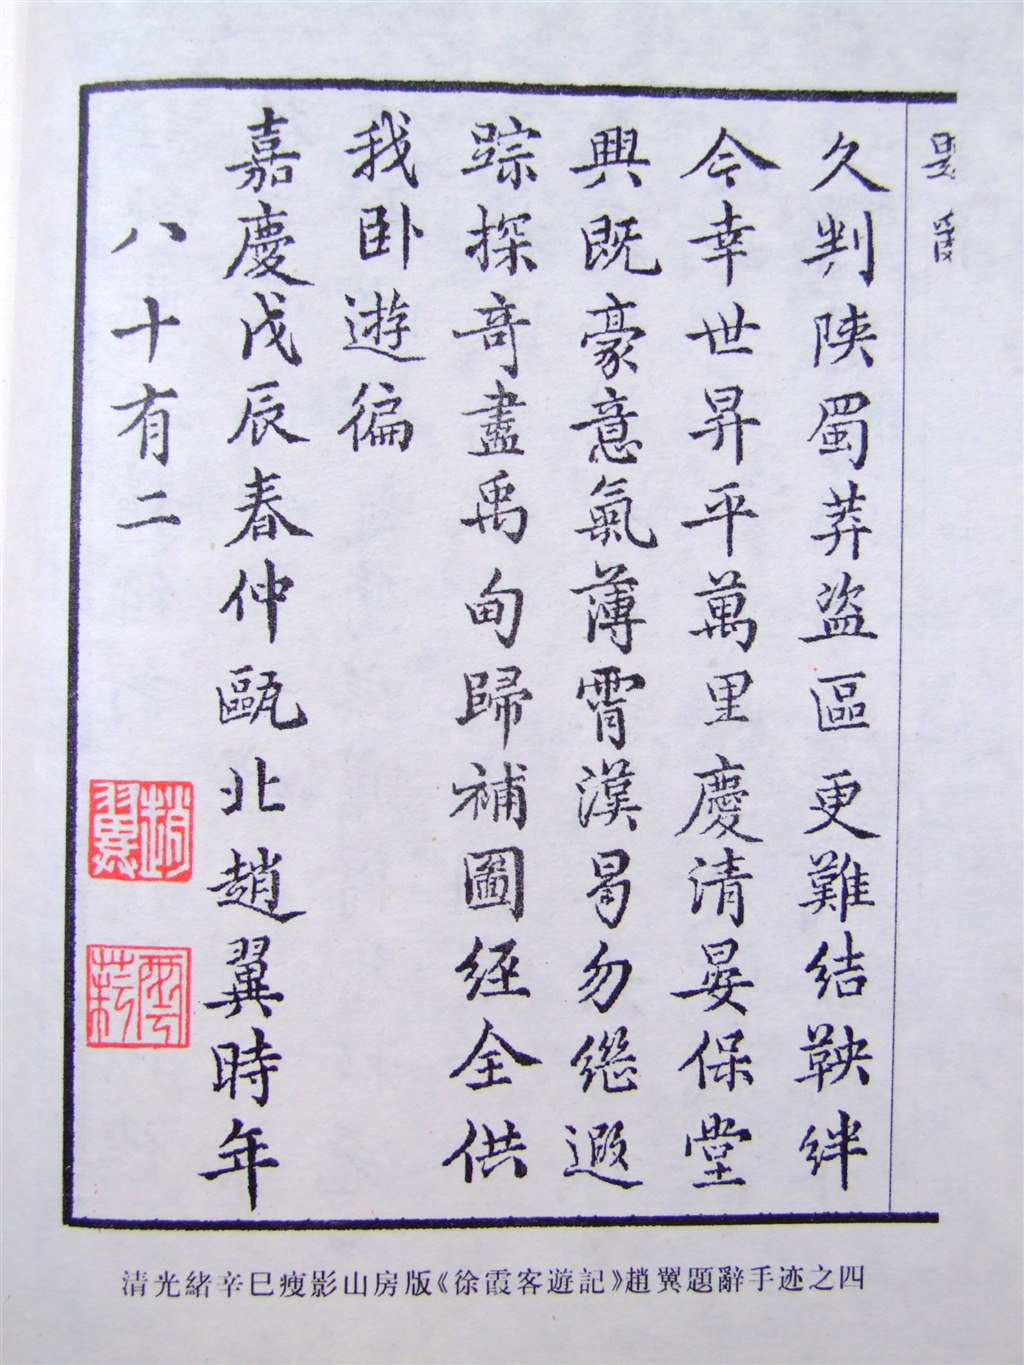 題
久判陝蜀莽盜區更難結鞅絆
今幸世昇平萬里慶清晏保堂
興既豪意氣薄霄漢曷勿繼遐
踪探奇盡禹甸歸補圖經全供
我卧遊徧
嘉慶戊辰春仲甌北趙翼時年
八十有二
趙翼
雲菘
清光緒辛巳瘦影山房版《徐霞客遊記》趙翼題辭手迹之四